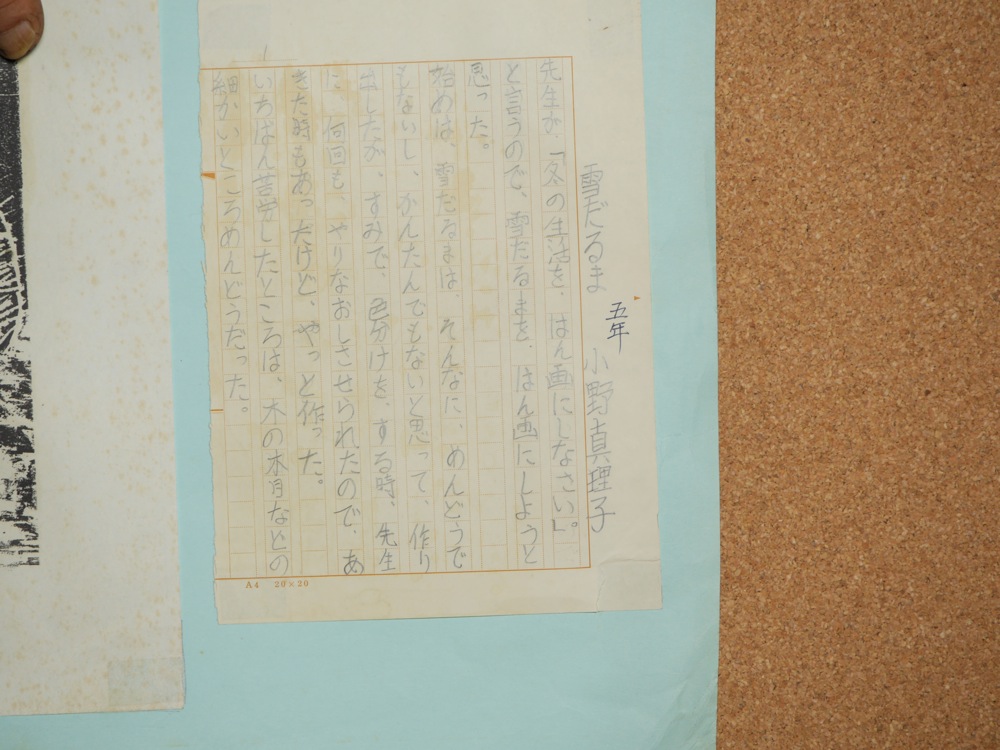 雪だるま
五年 小野真理子
先生が、「冬の生活を、はん画にしなさい」。
と言うので、雪だるまを、はん画にしようと
思った。
始めは、雪だるまは、そんなに、めんどうで
もないし、かんたんでもないと思って、作り
出したが、すみで、色分けを、する時、先生
に、何回も、やりなおしさせられたので、あ
きた時もあったけど、やっと作った。
いちばん苦労したところは、木の木肖などの
細かいところめんどうだった。
A4 20×20